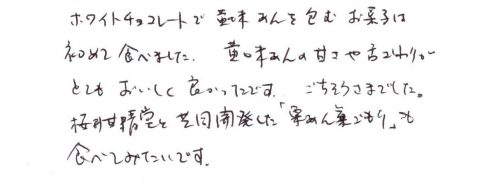 ホワイトチョコレートで黄味あんを包むお菓子は
初めて食べました。黄味あんの甘さや舌ざわりが
とてもおいしく良かったです。ごちそうさまでした。
桜井甘精堂と共同開発した「栗あん巣ごもり」も
食べてみたいです。